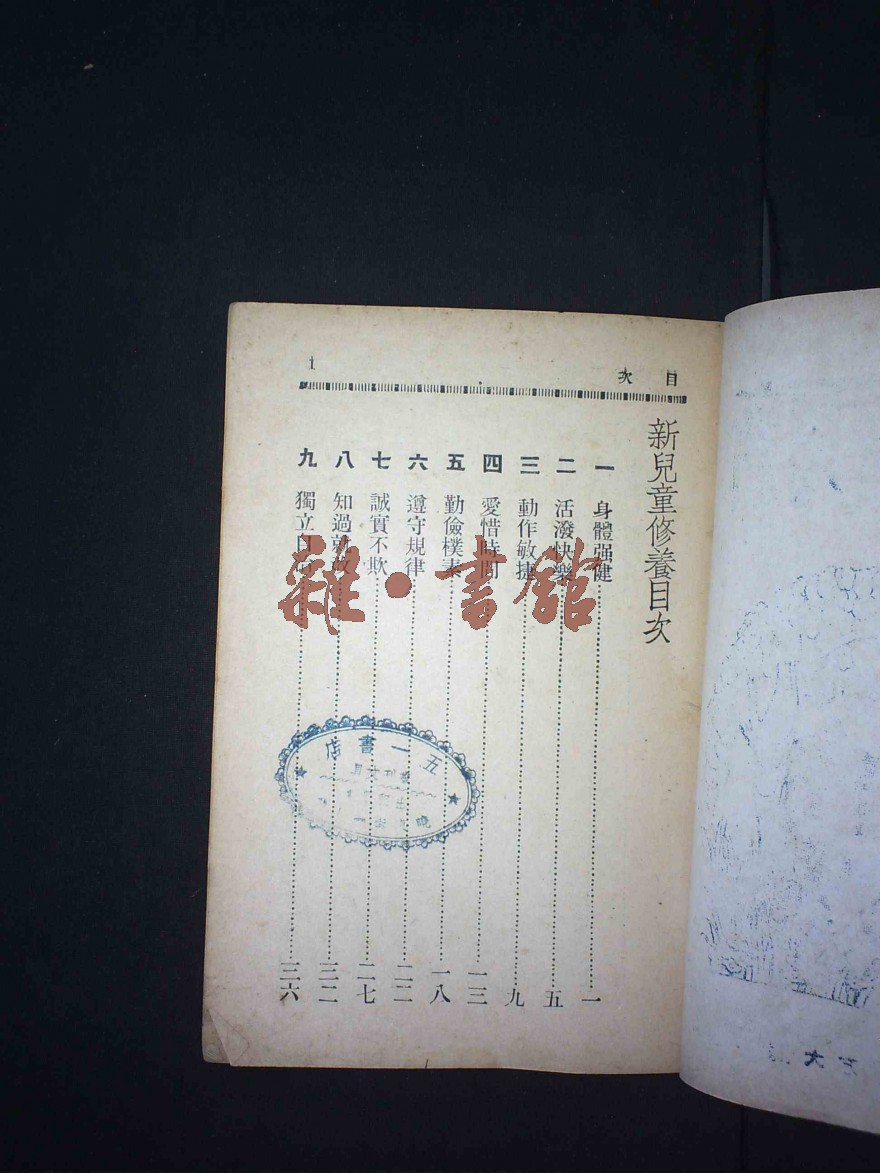 目次
1
新兒童修養目次
一 身體强健 一
二 活潑快樂 五
三 動作敏捷 九
四 愛惜時間 一三
五 勤儉樸素 一八
六 遵守規律 二二
七 誠實不欺 二七
八 知過就改 三二
九 獨立自治 三六
雜·書館
五一書店